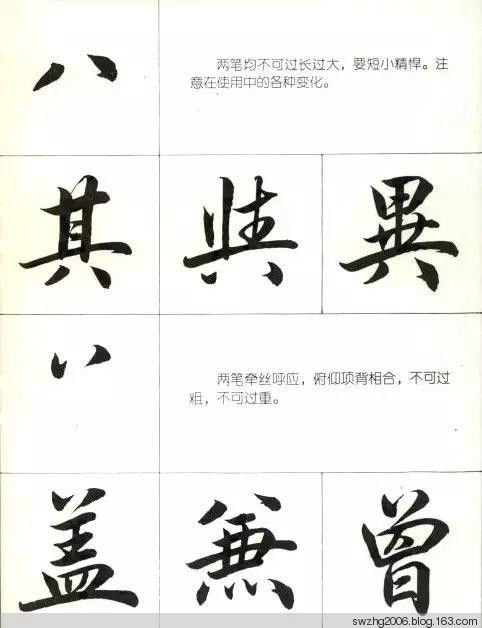 八
两笔均不可过长过大，要短小精悍。注
意在使用中的各种变化。
其 異
丷
两笔牵丝呼应，俯仰项背相合，不可过
粗，不可过重。
盖 兼 曾
swzhg2006.blog.163.com